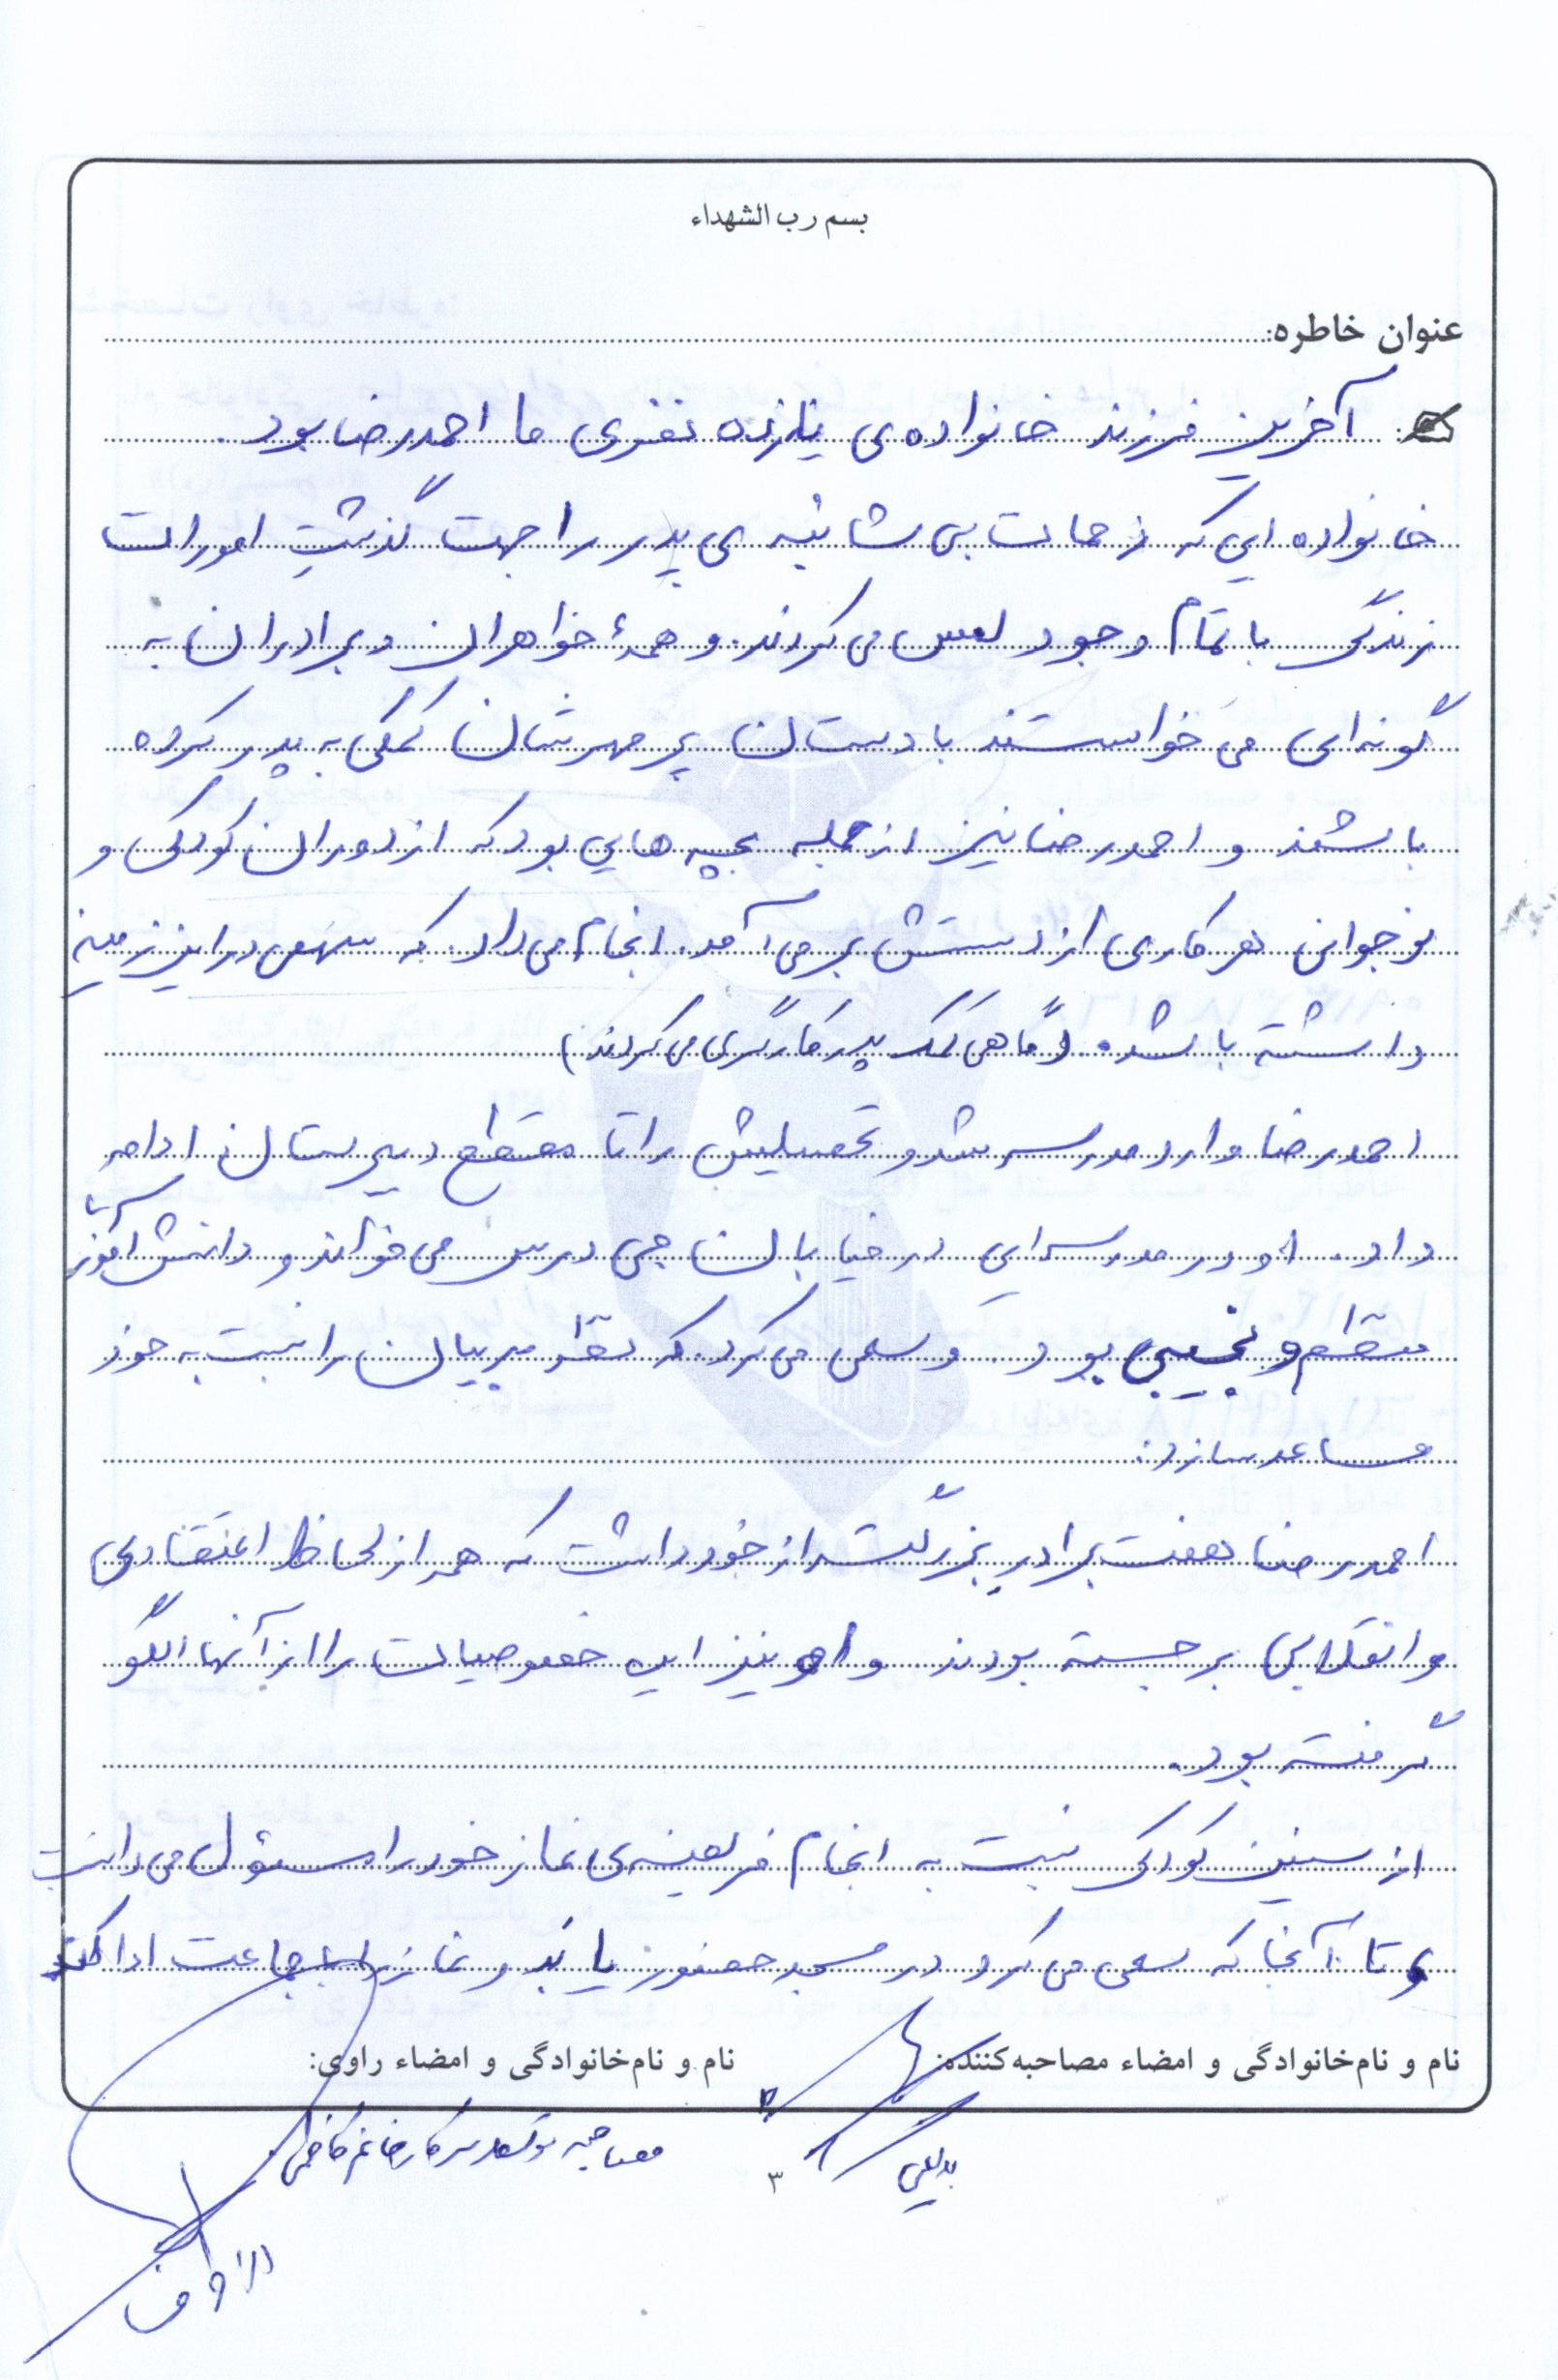 بسم رب الشهداء
عنوان خاطره:
آخرین فرزند خانواده‌ی یازده نفری ما احمدرضا بود.
خانواده ایی که زحمات بی شائبه ی پدر را جهت گذشتِ امورات
زندگی با تمام وجود لمس می کردند. و همهٔ خواهران و برادران به
گونه‌ای می خواستند با دستان پر مهرشان کمکی به پدر کرده
باشند و احمدرضا نیز از جمله بچه هایی بود که از دوران کودکی و
نوجوانی هر کاری از دستش بر می آمد. انجام می داد. که سهمی در این زمینه
داشته باشد. (گاهی کمک پدر کارگری می کردند)
احمدرضا وارد مدرسه شد و تحصیلیش را تا مقطع دبیرستان ادامه
داد. او در مدرسه ایی در خیابان درس می خواند و دانش آموز
منظم و نجیبی بود و سعی می کرد. که نظر مربیان را نسبت به خود
مساعد سازد.
احمدرضا هفت برادر بزرگتر از خود داشت که همه از لحاظ اعتقادی
و انقلابی برجسته بودند و او نیز این خصوصیات را از آنها الگو
گرفته بود.
از سنین کودکی نسبت به انجام فریضه‌ی نماز خود را مسئول می دانست
و تا آنجا که سعی می کرد در مسجد حضور یابد و نماز را به جماعت ادا کند
نام و نام‌خانوادگی و امضاء مصاحبه‌کننده:
نام و نام‌خانوادگی و امضاء راوی:
مصاحبه توسط سرکار خانم کاظمی
۳